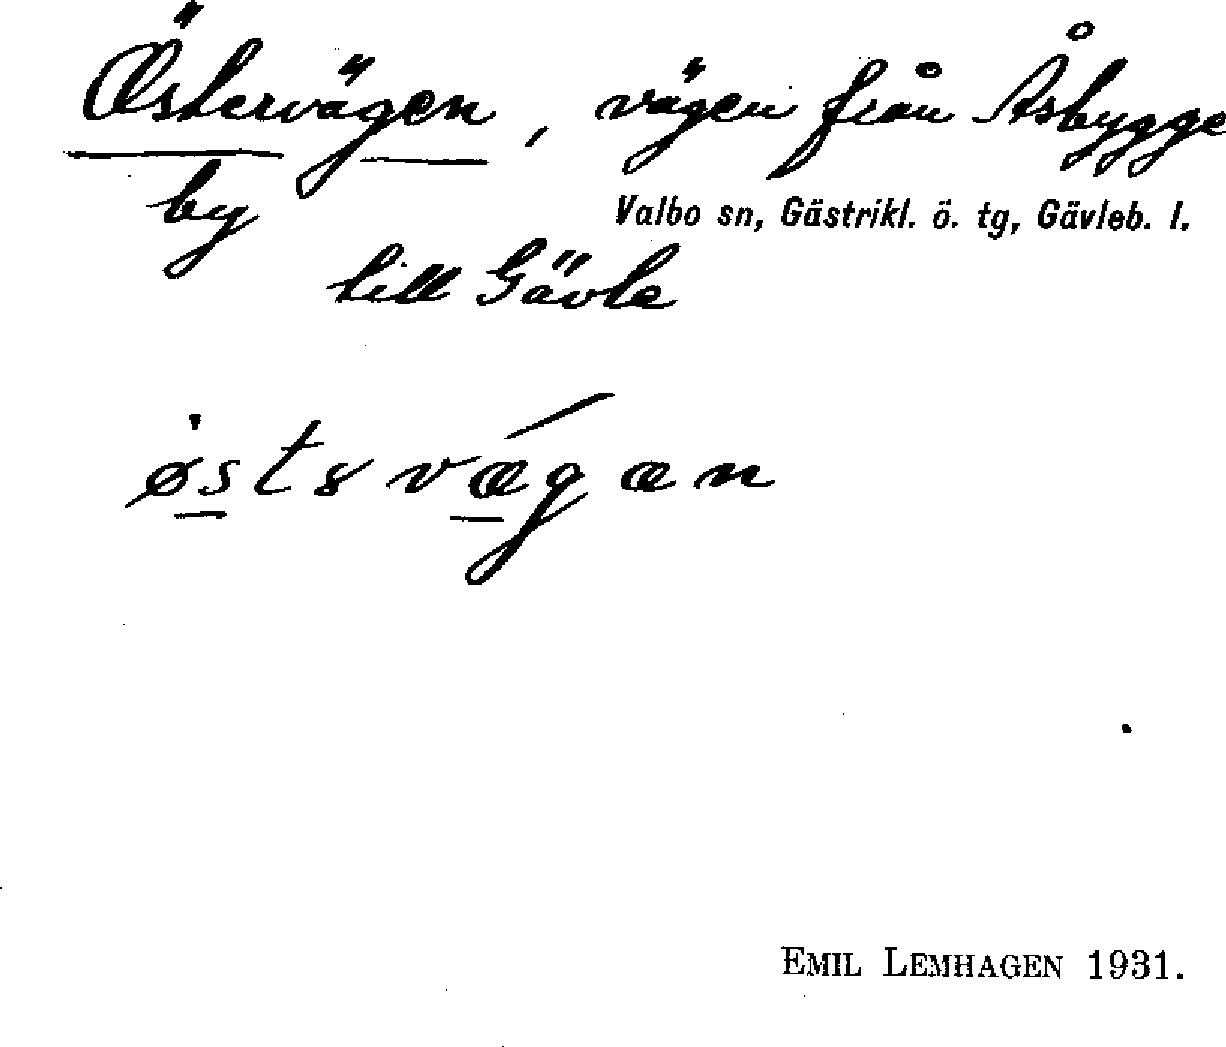 Östervägen, vägen från Åsbygge
by
Valbo sn, Gästrikl. ö. tg, Gävleb. l.
till Gävle
østsvægæn
EMIL LEMHAGEN 1931.